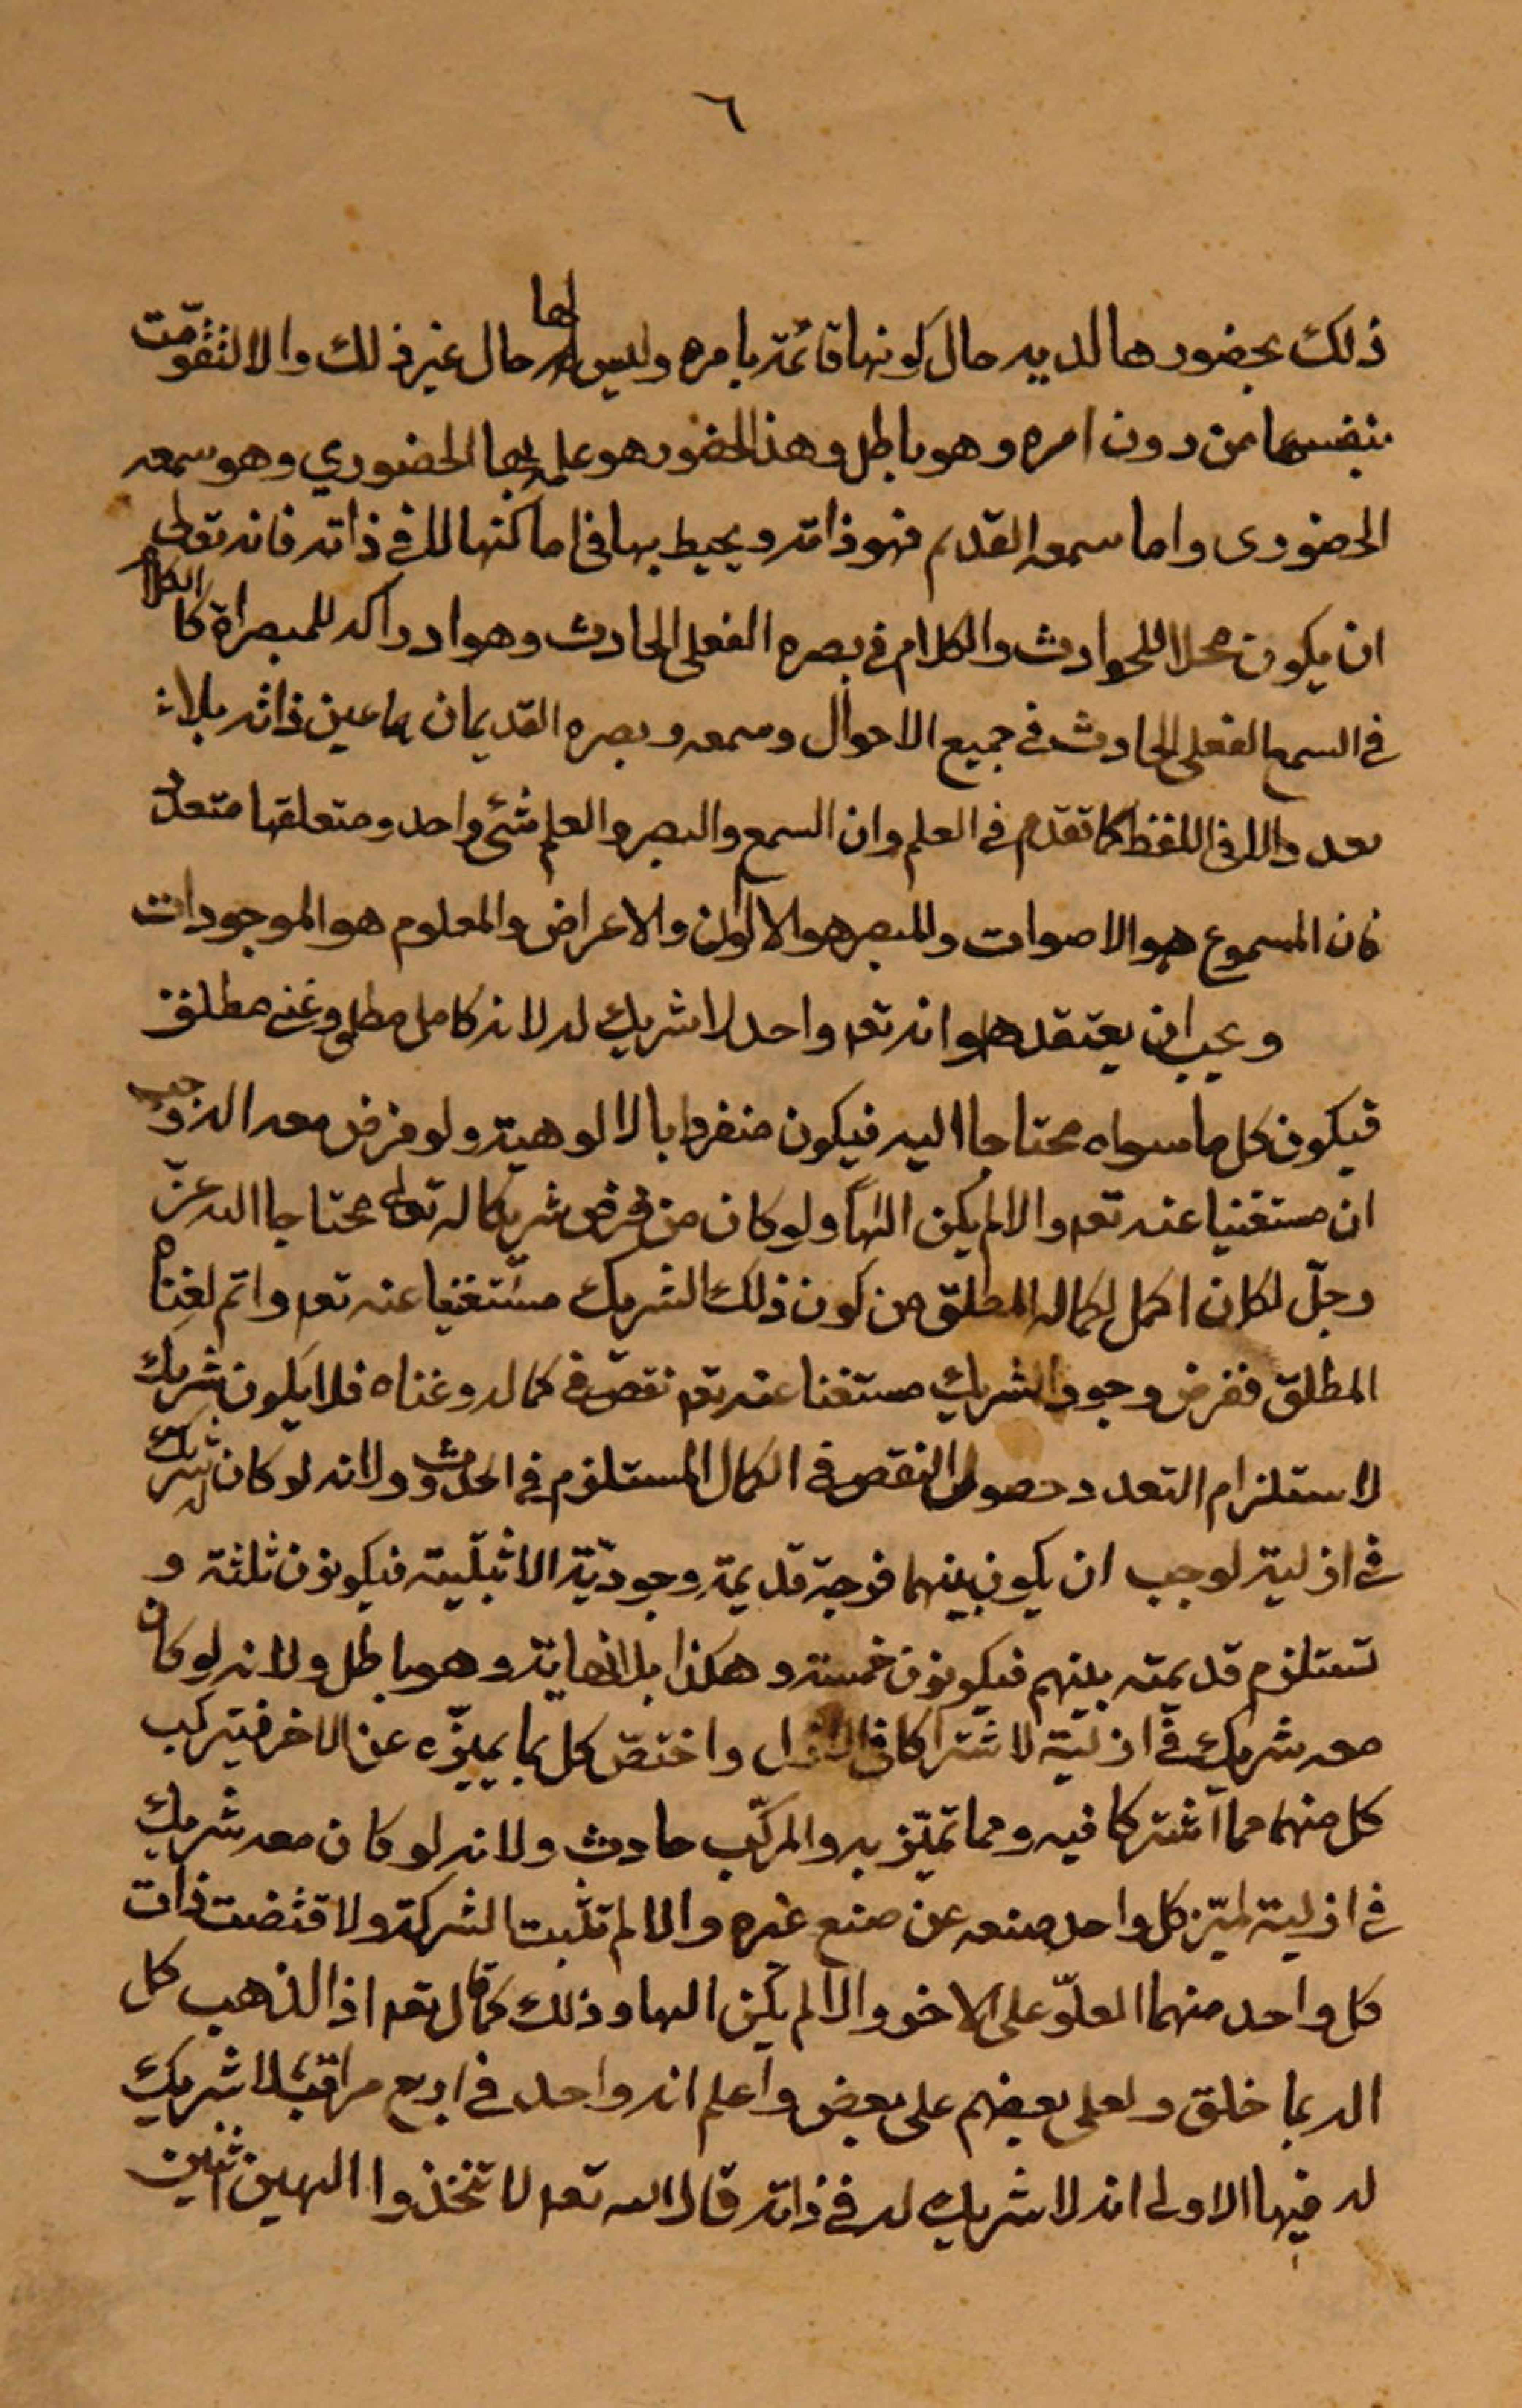 ٦
ذلك بحضورها لديه حال كونها قائمة بامره وليس لها حال غير ذلك والا لتقومت
بنفسها من دون امره وهو باطل وهذا الحضور هو علمه بها الحضوري وهو سمعه
الحضوري واما سمعه القديم فهو ذاته ويحيط بها في اماكنها لا في ذاته فانه تعالى
ان يكون محلا للحوادث والكلام في بصره الفعلى الحادث وهو ادراكه للمبصراة كالكلام
في السمع الفعلى الحادث في جميع الاحوال وسمعه وبصره القديمان هما عين ذاته بلا
تعدد الا في اللفظ كما تقدم في العلم وان السمع والبصر والعلم شئ واحد ومتعلقها متعدد
فان المسموع هو الاصوات والمبصر هو الالوان والاعراض والمعلوم هو الموجودات
ويجب ان يعتقد هو انه تعه واحد لا شريك له لانه كامل مطلق وغنى مطلق
فيكون كل ما سواه محتاجا اليه فيكون منفردا بالالوهية ولو فرض معه اله وجب
ان مستغنيا عنه تعه والا لم يكن الٰها ولو كان من فرض شريكا له تعالى محتاجا اليه عزّ
وجلّ لكان اكمل لكماله المطلق من كون ذلك الشريك مستغنيا عنه تعه واتم لغناه
المطلق ففرض وجود الشريك مستغنا عنه تعه نقص في كماله وغناه فلا يكون شريك
لاستلزام التعدد حصول النقص في الكمال المستلزم في الحدوث ولانه لو كان له شريك
في ازلية لوجب ان يكون بينهما فرجة قديمة وجوديّة الاثنينية فيكونون ثلثة و
تستلزم قديمته بينهم فيكونون خمسة وهكذا بلا نهاية وهو باطل ولانه لو كان
معه شريك في ازليّة لاشتراكا في الازل واختصّ كل بما يميّزه عن الاخر فيتركب
كل منهما مما اشتركا فيه ومما تميّز به والمركّب حادث ولانه لو كان معه شريك
في ازلية لميّز كل واحد صنعه عن صنع غيره والا لم تثبت الشركة ولاقتضت ذات
كل واحد منهما العلوّ على الاخر والا لم يكن الها وذلك كما قال تعه اذا لذهب كل
اله بما خلق ولعلى بعضهم على بعض واعلم انه واحد في اربع مراتب لا شريك
له فيها الاولى انه لا شريك له في ذاته قال الله تعه لا تتخذوا الهين اثنين